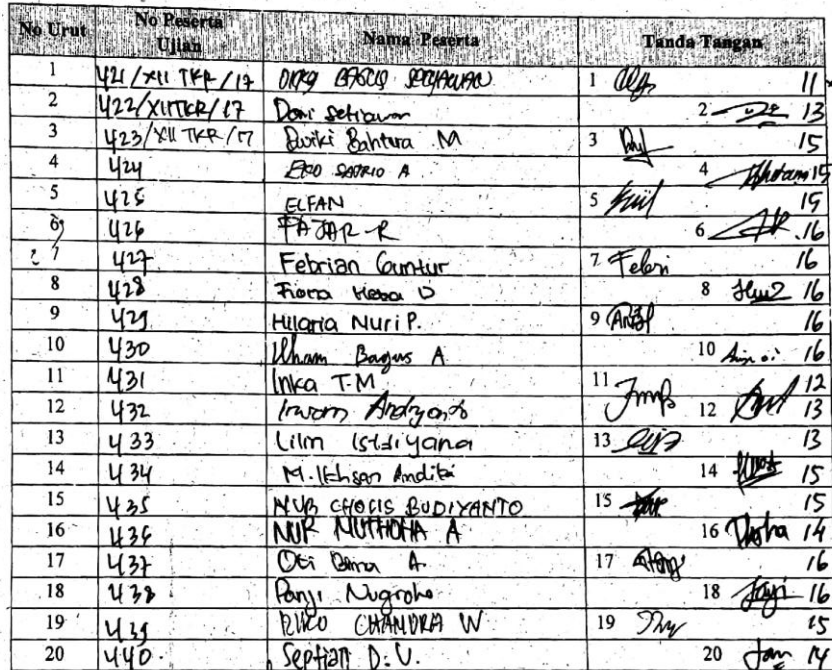 No Urut No Peserta Ujian Nama Peserta Tanda Tangan
1 421/XII TKR/17 BAGUS SETYAWAN 1 11
2 422/XII TKR/17 Doni Setiawan 2 13
3 423/XII TKR/17 Dwiki Bahtura M 3 15
4 424 EKO SATRIO A 4 15
5 425 ELFAN 5 15
6 426 FAJAR R 6 16
7 427 Febrian Guntur 7 Febri 16
8 428 8 16
9 429 Hilaria Nuri P. 9 16
10 430 Ilham Bagus A 10 16
11 431 Inka T.M 11 12
12 432 Irwan Andryanto 12 13
13 433 Lilin Istdiyana 13 13
14 434 M. Ikhsan Andika 14 15
15 435 NUR CHOLIS BUDIYANTO 15 15
16 436 NUR MUTHOHA A 16 14
17 437 Oti Bima A. 17 16
18 438 Panji Nugroho 18 16
19 439 RIKO CHANDRA W 19 15
20 440. Septian D.V. 20 14